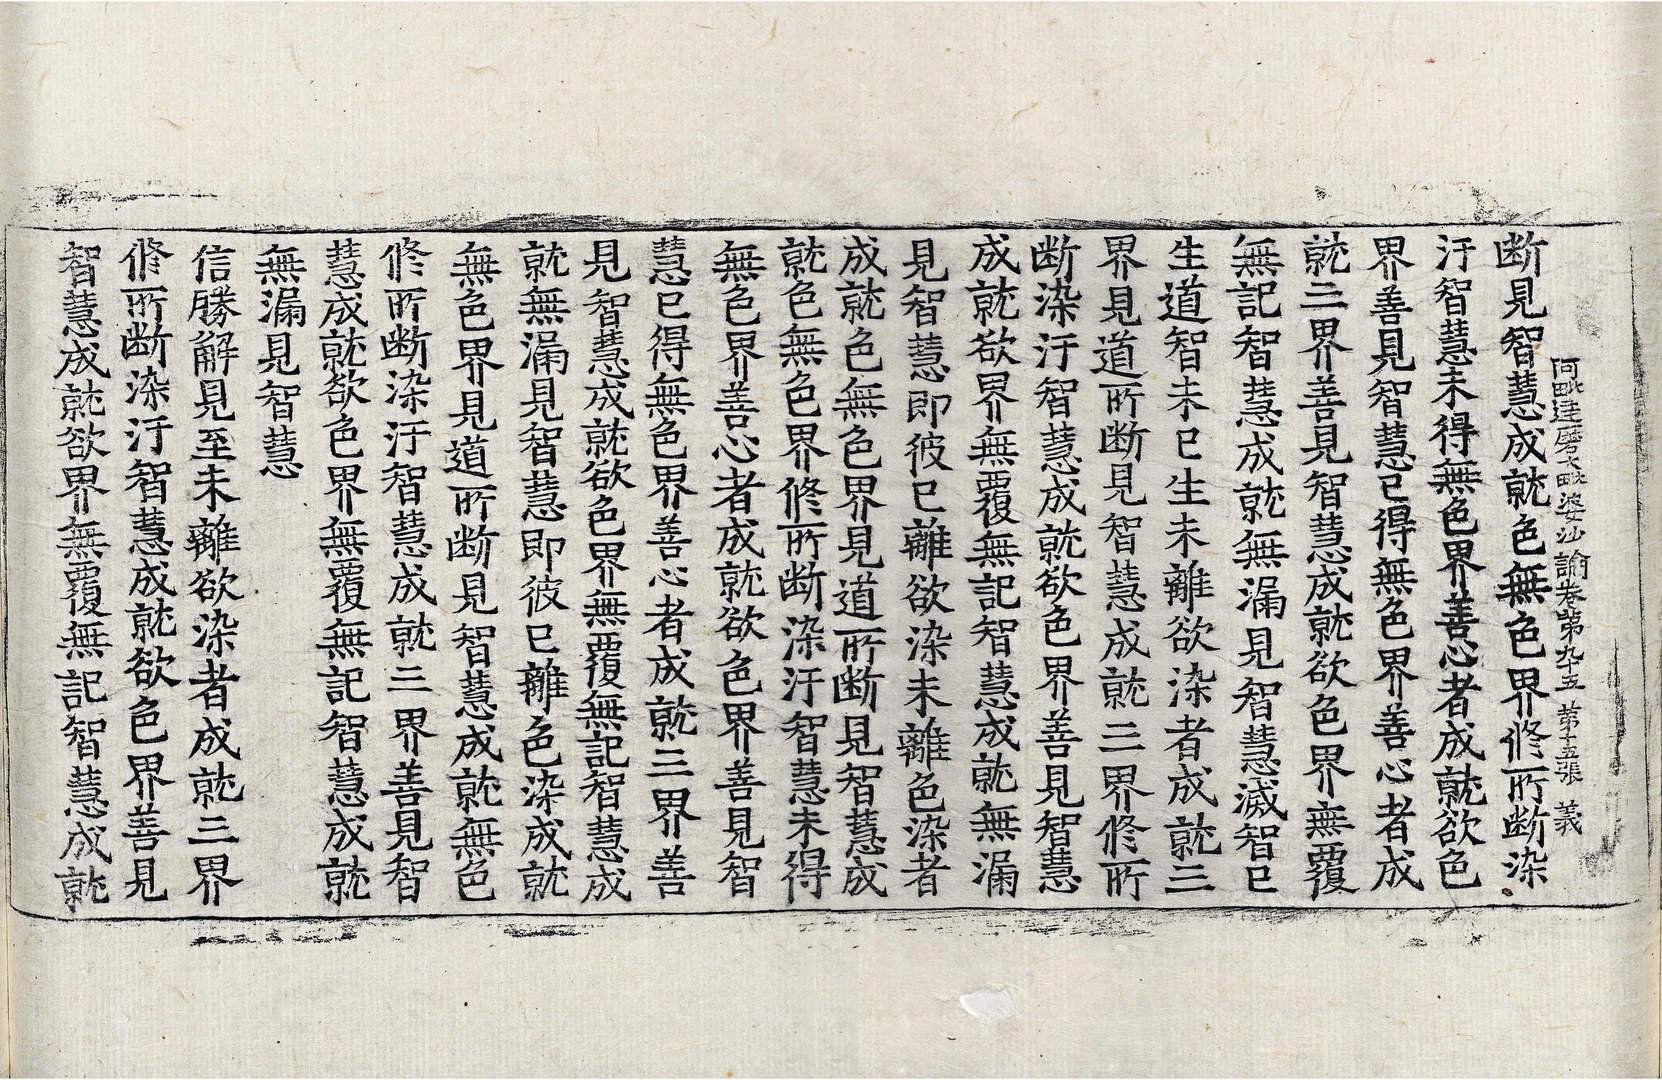 阿毗達磨大毗婆沙論卷第九十五 第十五張 義
断見智慧成就色無色界修所断染
汙智慧未得無色界善心者成就欲色
界善見智慧已得無色界善心者成
就三界善見智慧成就欲色界無覆
無記智慧成就無漏見智慧滅智已
生道智未已生未離欲染者成就三
界見道所断見智慧成就三界修所
断染汙智慧成就欲色界善見智慧
成就欲界無覆無記智慧成就無漏
見智慧即彼已離欲染未離色染者
成就色無色界見道所断見智慧成
就色無色界修所断染汙智慧未得
無色界善心者成就欲色界善見智
慧已得無色界善心者成就三界善
見智慧成就欲色界無覆無記智慧成
就無漏見智慧即彼已離色染成就
無色界見道所断見智慧成就無色
修所断染汙智慧成就三界善見智
慧成就欲色界無覆無記智慧成就
無漏見智慧
信勝解見至未離欲染者成就三界
修所断染汙智慧成就欲色界善見
智慧成就欲界無覆無記智慧成就